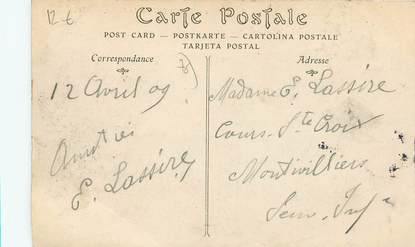 12 €
Carte Postale
POST CARD — POSTKARTE — CARTOLINA POSTALE
TARJETA POSTAL
Correspondance
12 Avril 09
Amitiés
E. Lassire
Adresse
Madame E. Lassire
Cours Ste Croix
Montivilliers
Sein. Infre